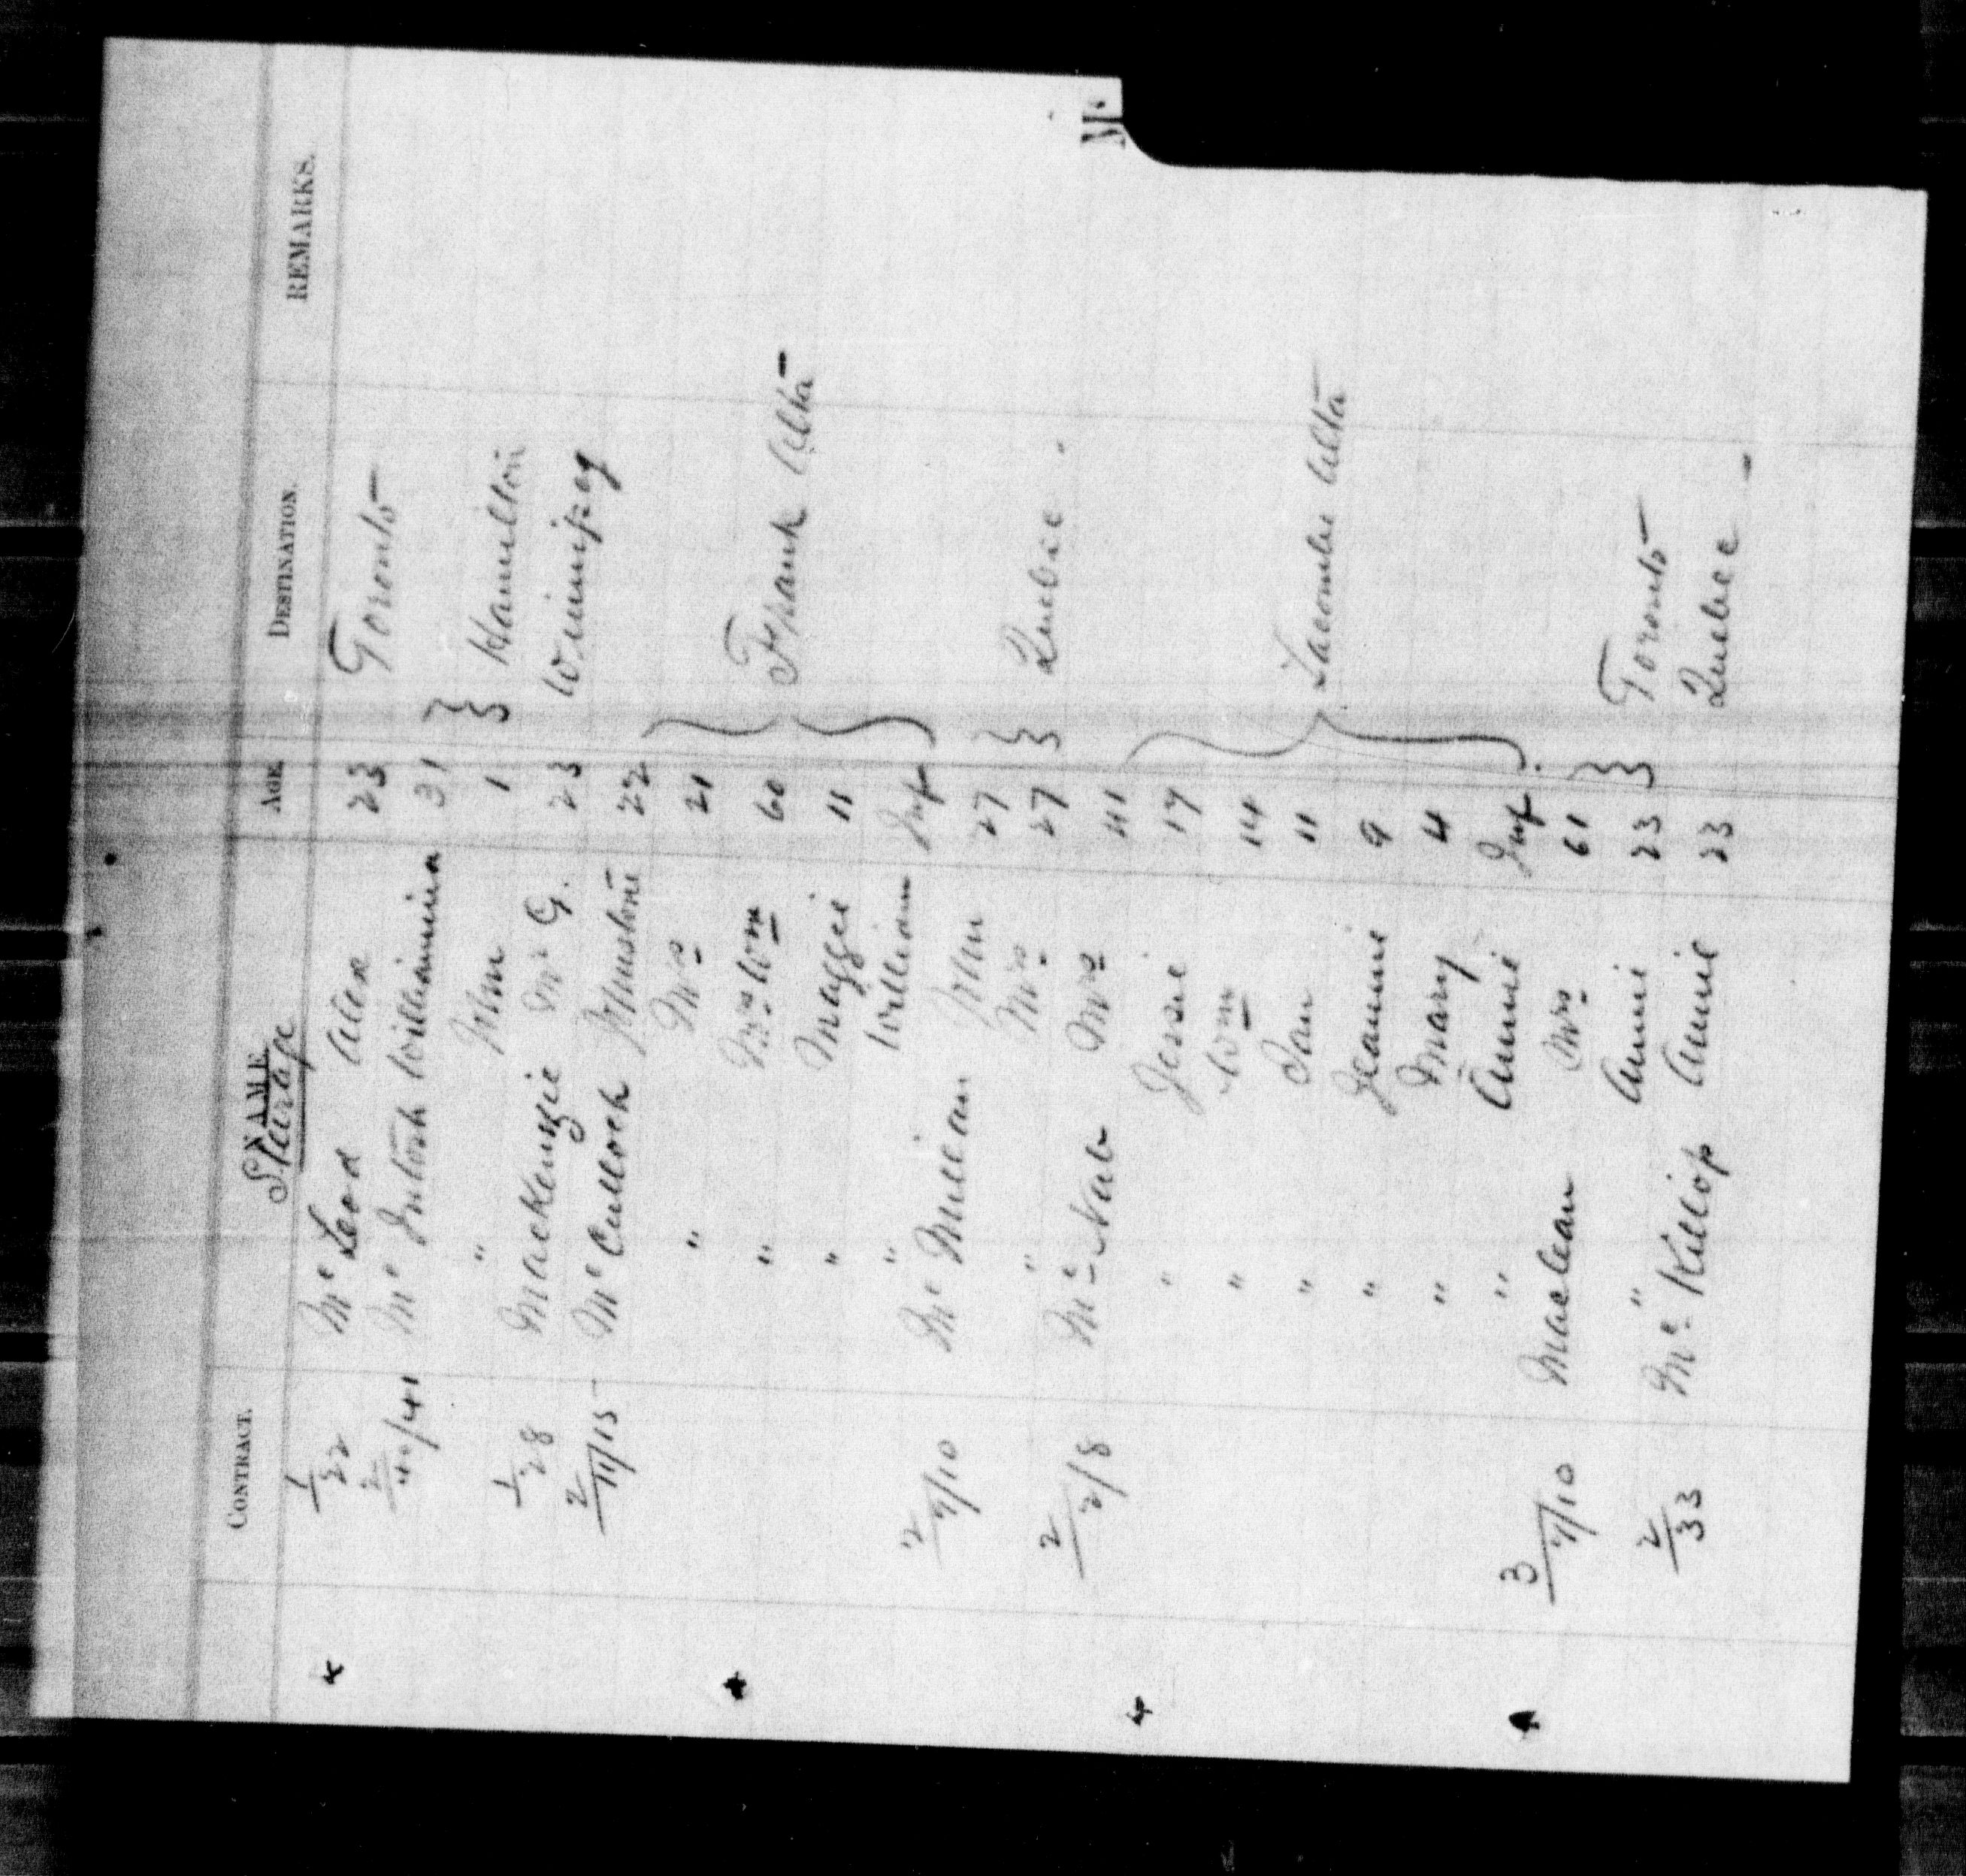 CONTRACT. NAME AGE DESTINATION. REMARKS.
Steerage
1/22 Mc Leod Alex 23 Toronto
Mc Intosh Williamina 31
" John 1 Hamilton
1/28 MacKenzie Mr G. 23 Winnipeg
2/11/15 Mc Culloch Johnstone 22
" Mrs 21
" Mrs Wm 60 Frank Alta
" Maggie 11
" William Inf
2/7/10 Mc Millan John 27
" Mrs 27 Quebec.
2/2/8 Mc Nab Mrs 41
" Jessie 17
" Wm 14
" Ian 11 Lacombe Alta
" Jeannie 9
" Mary 4
" Annie Inf
3/7/10 Maclean Mrs 61
" Annie 23 Toronto
2/33 Mc Killop Annie 23 Quebec
Mc